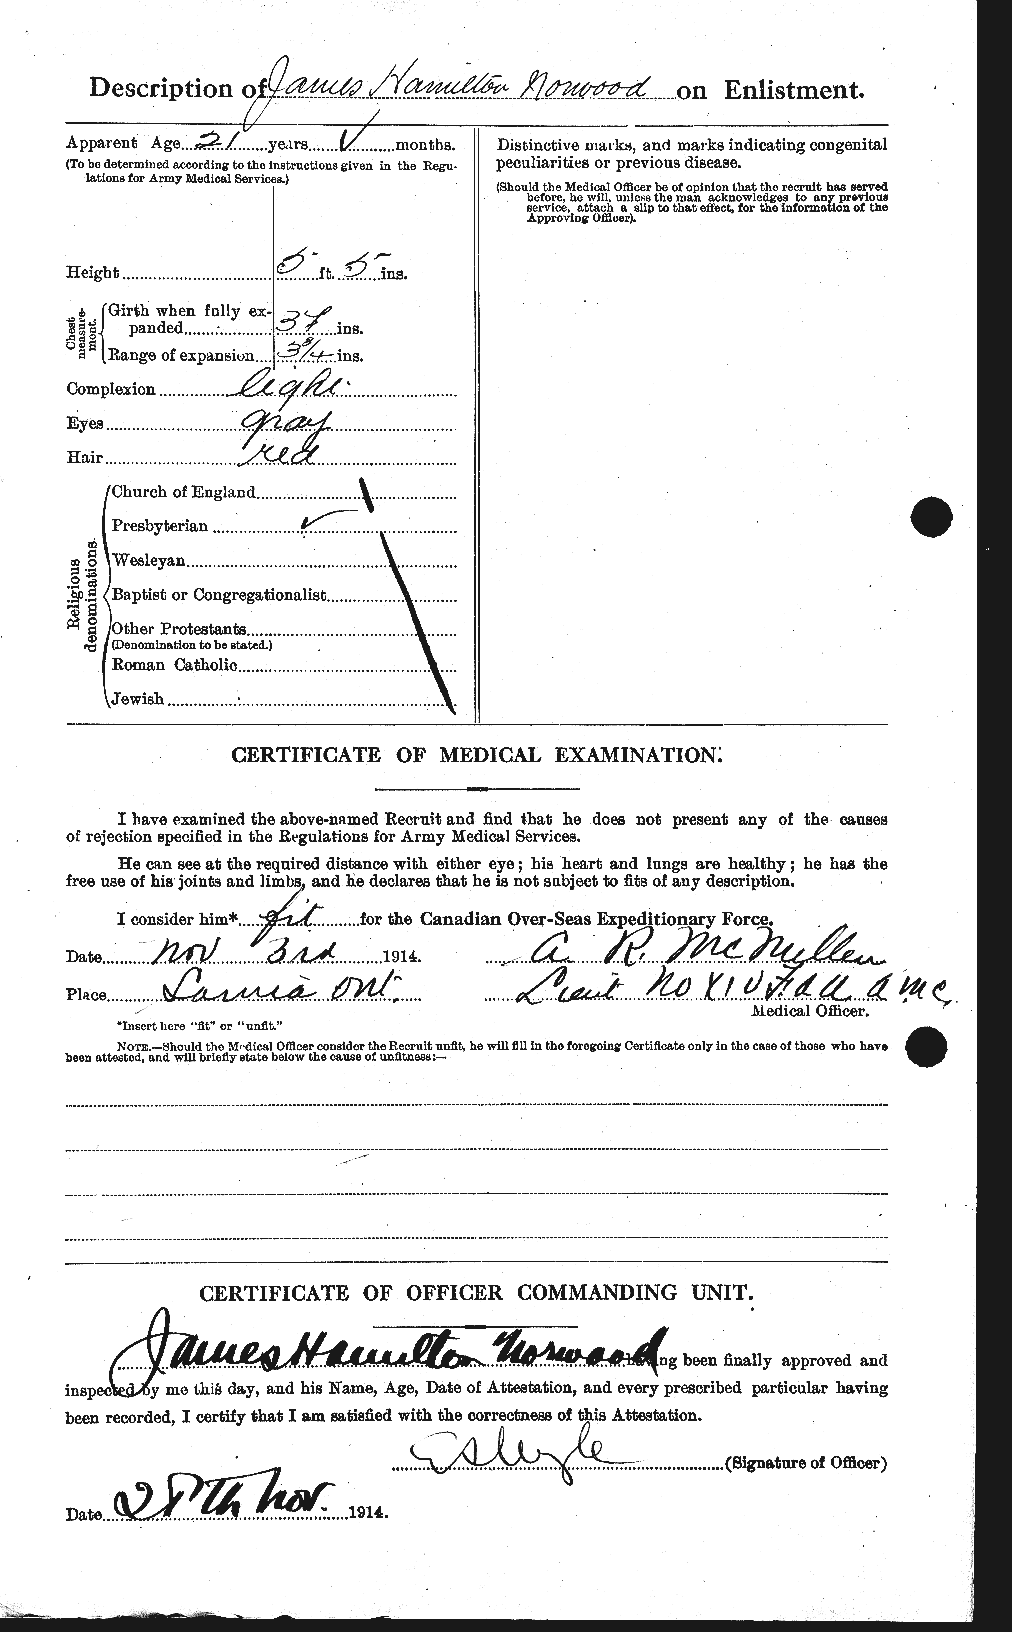 Description of James Hamilton Norwood on Enlistment.
Apparent Age 21 years V months.
(To be determined according to the instructions given in the Regu-
lations for Army Medical Services.)
Height 5 ft. 5 ins.
Chest measure-ment.
Girth when fully ex-
panded 37 ins.
Range of expansion 3 3/4 ins.
Complexion light
Eyes gray
Hair red
Religious denominations.
Church of England
Presbyterian ✓
Wesleyan
Baptist or Congregationalist
Other Protestants
(Denomination to be stated.)
Roman Catholic
Jewish
Distinctive marks, and marks indicating congenital
peculiarities or previous disease.
(Should the Medical Officer be of opinion that the recruit has served
before, he will, unless the man acknowledges to any previous
service, attach a slip to that effect, for the information of the
Approving Officer).
CERTIFICATE OF MEDICAL EXAMINATION.
I have examined the above-named Recruit and find that he does not present any of the causes
of rejection specified in the Regulations for Army Medical Services.
He can see at the required distance with either eye; his heart and lungs are healthy; he has the
free use of his joints and limbs, and he declares that he is not subject to fits of any description.
I consider him* fit for the Canadian Over-Seas Expeditionary Force.
Date Nov 3rd 1914. A. R. McMullen
Place Sarnia Ont. Lieut No XIV F.d A. A.M.C.
Medical Officer.
*Insert here "fit" or "unfit."
NOTE.—Should the Medical Officer consider the Recruit unfit, he will fill in the foregoing Certificate only in the case of those who have
been attested, and will briefly state below the cause of unfitness:—
CERTIFICATE OF OFFICER COMMANDING UNIT.
James Hamilton Norwood having been finally approved and
inspected by me this day, and his Name, Age, Date of Attestation, and every prescribed particular having
been recorded, I certify that I am satisfied with the correctness of this Attestation.
(Signature of Officer)
Date 28th Nov. 1914.